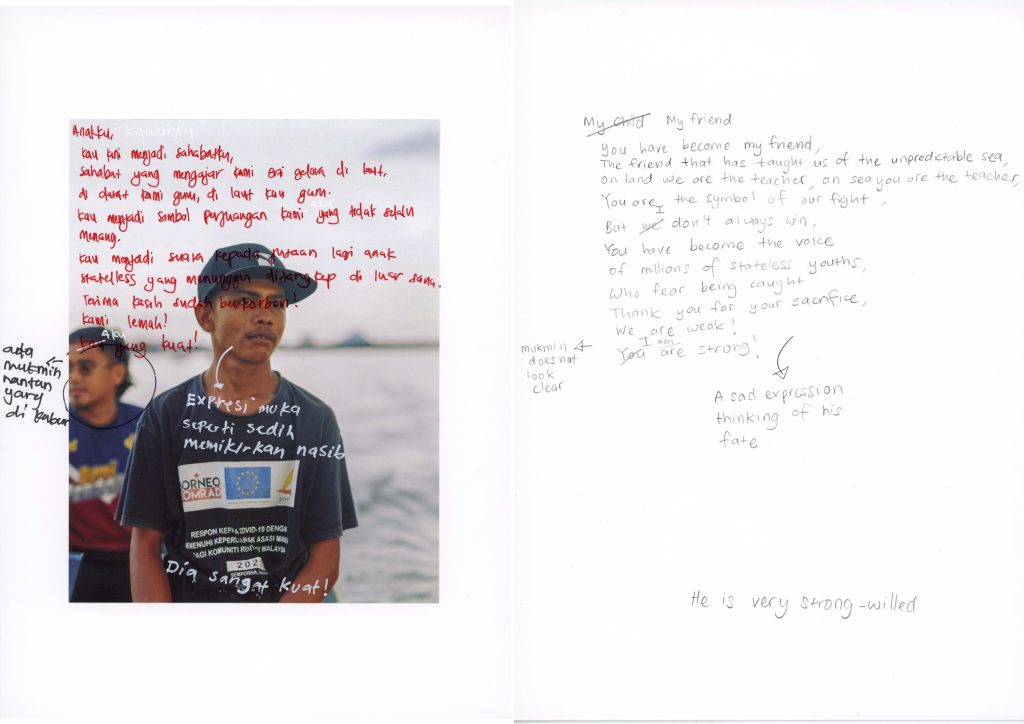 Anakku, - kawanku
kau kini menjadi sahabatku,
sahabat yang mengajar kami erti gelora di laut,
di darat kami guru, di laut kau guru.
aku
kau menjadi simbol perjuangan kami yang tidak selalu
menang.
kau menjadi suara kepada jutaan lagi anak
stateless yang menunggu ditangkap di luar sana.
Terima kasih sudah berkorban!
kami lemah!
Aku
kau yang kuat!
ada
mukmin
nantan
yang
di kabur
Expresi muka
seperti sedih
memikirkan nasib
BORNEO
KOMRAD
RESPON KEP COVID-19 DENGA
MEMENUHI KEPERLUAN ASASI MA
BAGI KOMUNITI RE MALAYSIA
202
SEMPORNA,
Dia sangat kuat!
My Child My friend
You have become my friend,
The friend that has taught us of the unpredictable sea,
on land we are the teacher, on sea you are the teacher,
You are the symbol of our fight,
I
But we don't always win,
You have become the voice
of millions of stateless youths,
Who fear being caught
Thank you for your sacrifice,
We are weak!
I am
You are strong!
mukmin
does not
look
clear
A sad expression
thinking of his
fate.
He is very strong-willed